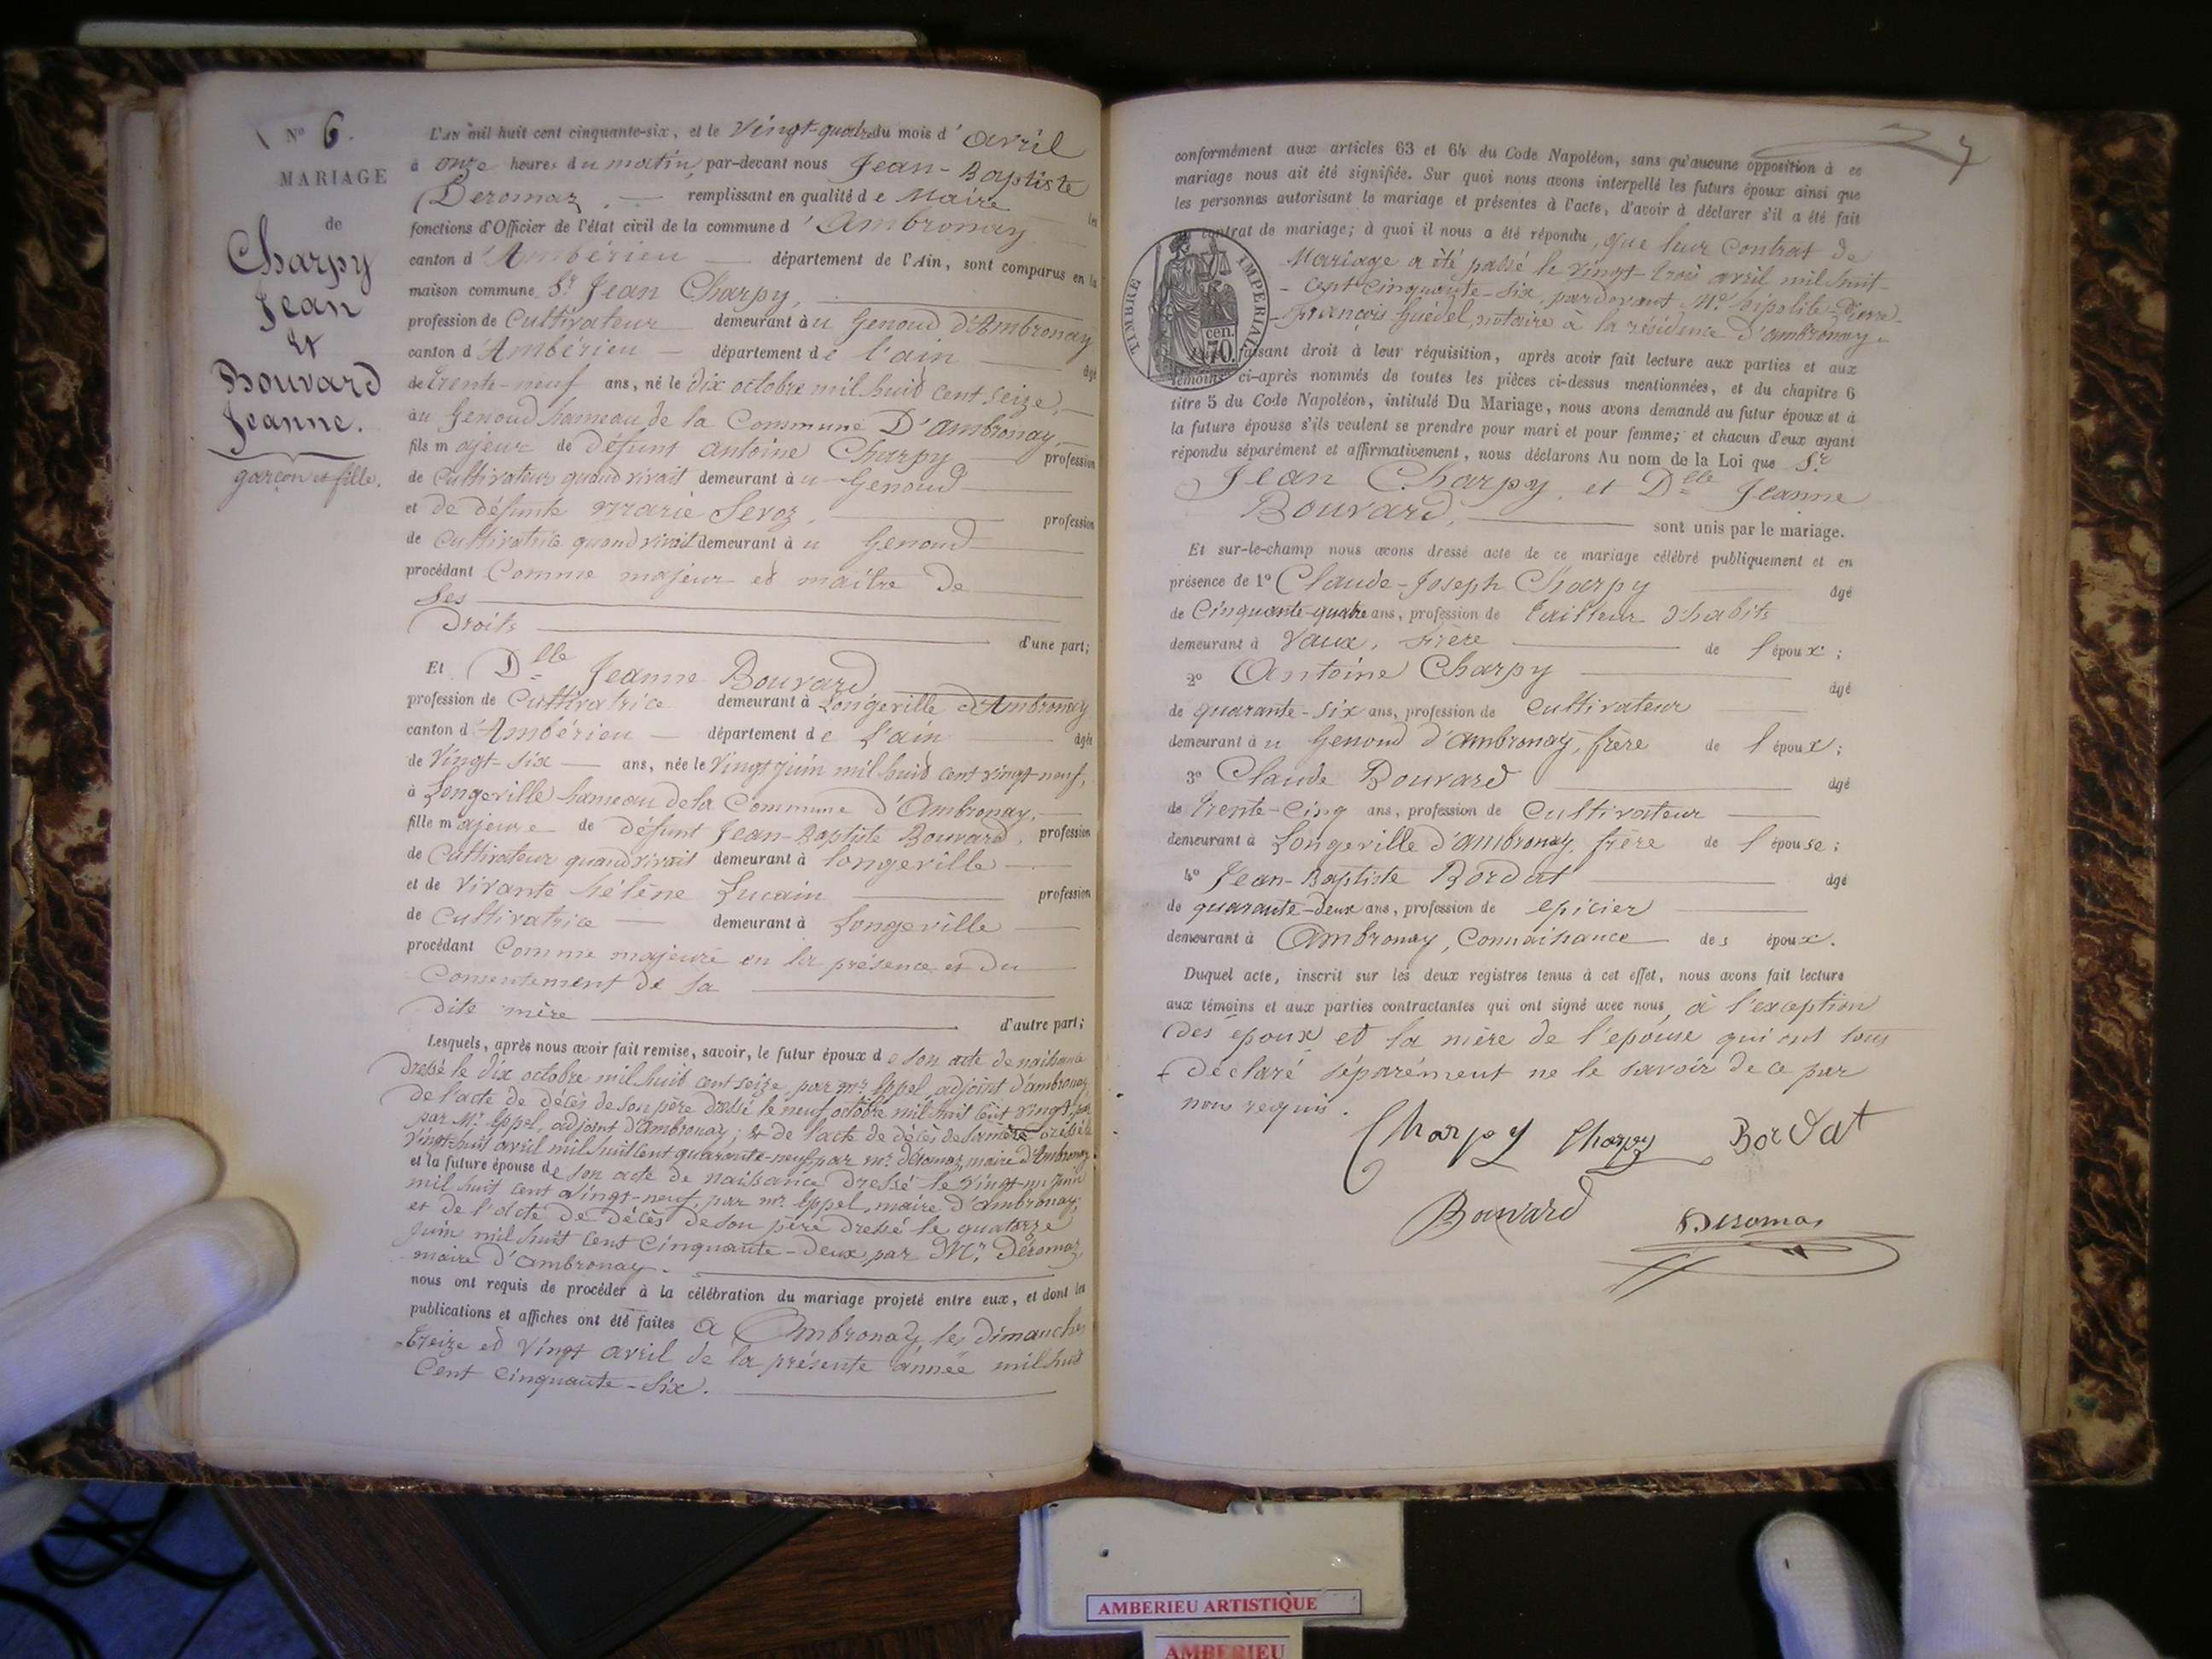 N° 6.
MARIAGE
de
Charpy
Jean
et
Bouvard
Jeanne.
garçon et fille.
L'AN mil huit cent cinquante-six, et le Vingt-quatre du mois d'avril
à onze heures du matin, par-devant nous Jean-Baptiste
Deromaz, remplissant en qualité de Maire les
fonctions d'Officier de l'état civil de la commune d'Ambronay
canton d'Ambérieu département de l'Ain, sont comparus en la
maison commune Sr Jean Charpy,
profession de Cultivateur demeurant au Genoud d'Ambronay
canton d'Ambérieu département de l'ain âgé
de trente-neuf ans, né le dix octobre mil huit cent seize,
au Genoud hameau de la Commune D'ambronay,
fils majeur de défunt antoine Charpy profession
de Cultivateur quand vivait demeurant au Genoud
et de défunte Marie Servoz, profession
de Cultivatrice quand vivait demeurant au Genoud
procédant Comme majeur et maître de
Ses
Droits d'une part;
Et Dlle Jeanne Bouvard
profession de Cultivatrice demeurant à Longeville d'Ambronay
canton d'Ambérieu département de l'ain âgée
de Vingt-six ans, née le Vingt juin mil huit cent vingt-neuf,
à Longeville hameau de la Commune d'Ambronay,
fille majeure de défunt Jean-Baptiste Bouvard, profession
de Cultivateur quand vivait demeurant à longeville
et de vivante hélène Lucain profession
de Cultivatrice demeurant à Longeville
procédant Comme majeure en la présence et du
Consentement de sa
dite mère d'autre part;
Lesquels, après nous avoir fait remise, savoir, le futur époux de son acte de naissance
dressé le dix octobre mil huit cent seize, par mr Eppel, adjoint d'ambronay,
de l'acte de décès de son père dressé le neuf octobre mil huit cent vingt,
par Mr Eppel, adjoint d'ambronay; & de l'acte de décès de sa mère dressé le
vingt-huit avril mil huit cent quarante-neuf par mr déromaz, maire d'Ambronay
et la future épouse de son acte de naissance dressé le vingt-un juin
mil huit cent vingt-neuf, par mr Eppel, maire d'ambronay,
et de l'acte de décès de son père dressé le quatorze
juin mil huit cent Cinquante-deux, par Mr. déromaz,
maire d'ambronay.
nous ont requis de procéder à la célébration du mariage projeté entre eux, et dont les
publications et affiches ont été faites à Ambronay, les dimanches
treize et vingt avril de la présente année mil huit
Cent Cinquante-Six.
7
conformément aux articles 63 et 64 du Code Napoléon, sans qu'aucune opposition à ce
mariage nous ait été signifiée. Sur quoi nous avons interpellé les futurs époux ainsi que
les personnes autorisant le mariage et présentes à l'acte, d'avoir à déclarer s'il a été fait
contrat de mariage; à quoi il nous a été répondu, que leur Contrat de
Mariage a été passé le vingt-trois avril mil huit
-cent Cinquante-Six, pardevant Me hipolite-Pierre-
François Guédel, notaire à la résidence d'ambronay.
TIMBRE IMPERIAL
cen. 70.
faisant droit à leur réquisition, après avoir fait lecture aux parties et aux
témoins ci-après nommés de toutes les pièces ci-dessus mentionnées, et du chapitre 6
titre 5 du Code Napoléon, intitulé Du Mariage, nous avons demandé au futur époux et à
la future épouse s'ils veulent se prendre pour mari et pour femme; et chacun d'eux ayant
répondu séparément et affirmativement, nous déclarons Au nom de la Loi que Sr
Jean Charpy, et Dlle Jeanne
Bouvard, sont unis par le mariage.
Et sur-le-champ nous avons dressé acte de ce mariage célébré publiquement et en
présence de 1° Claude-Joseph Charpy âgé
de Cinquante-quatre ans, profession de tailleur d'habits
demeurant à Vaux, frère de l'époux;
2° Antoine Charpy âgé
de quarante-six ans, profession de Cultivateur
demeurant au Genoud d'ambronay, frère de l'époux;
3° Claude Bouvard âgé
de trente-cinq ans, profession de Cultivateur
demeurant à Longeville d'ambronay, frère de l'épouse;
4° Jean-Baptiste Bordat âgé
de quarante-deux ans, profession de epicier
demeurant à Ambronay, Connaissance des époux.
Duquel acte, inscrit sur les deux registres tenus à cet effet, nous avons fait lecture
aux témoins et aux parties contractantes qui ont signé avec nous, à l'exception
des époux et la mère de l'épouse qui ont tous
déclaré séparément ne le savoir de ce par
nous requis.
Charpy Charpy Bordat
Bouvard Deromas
AMBERIEU ARTISTIQUE
AMBERIEU